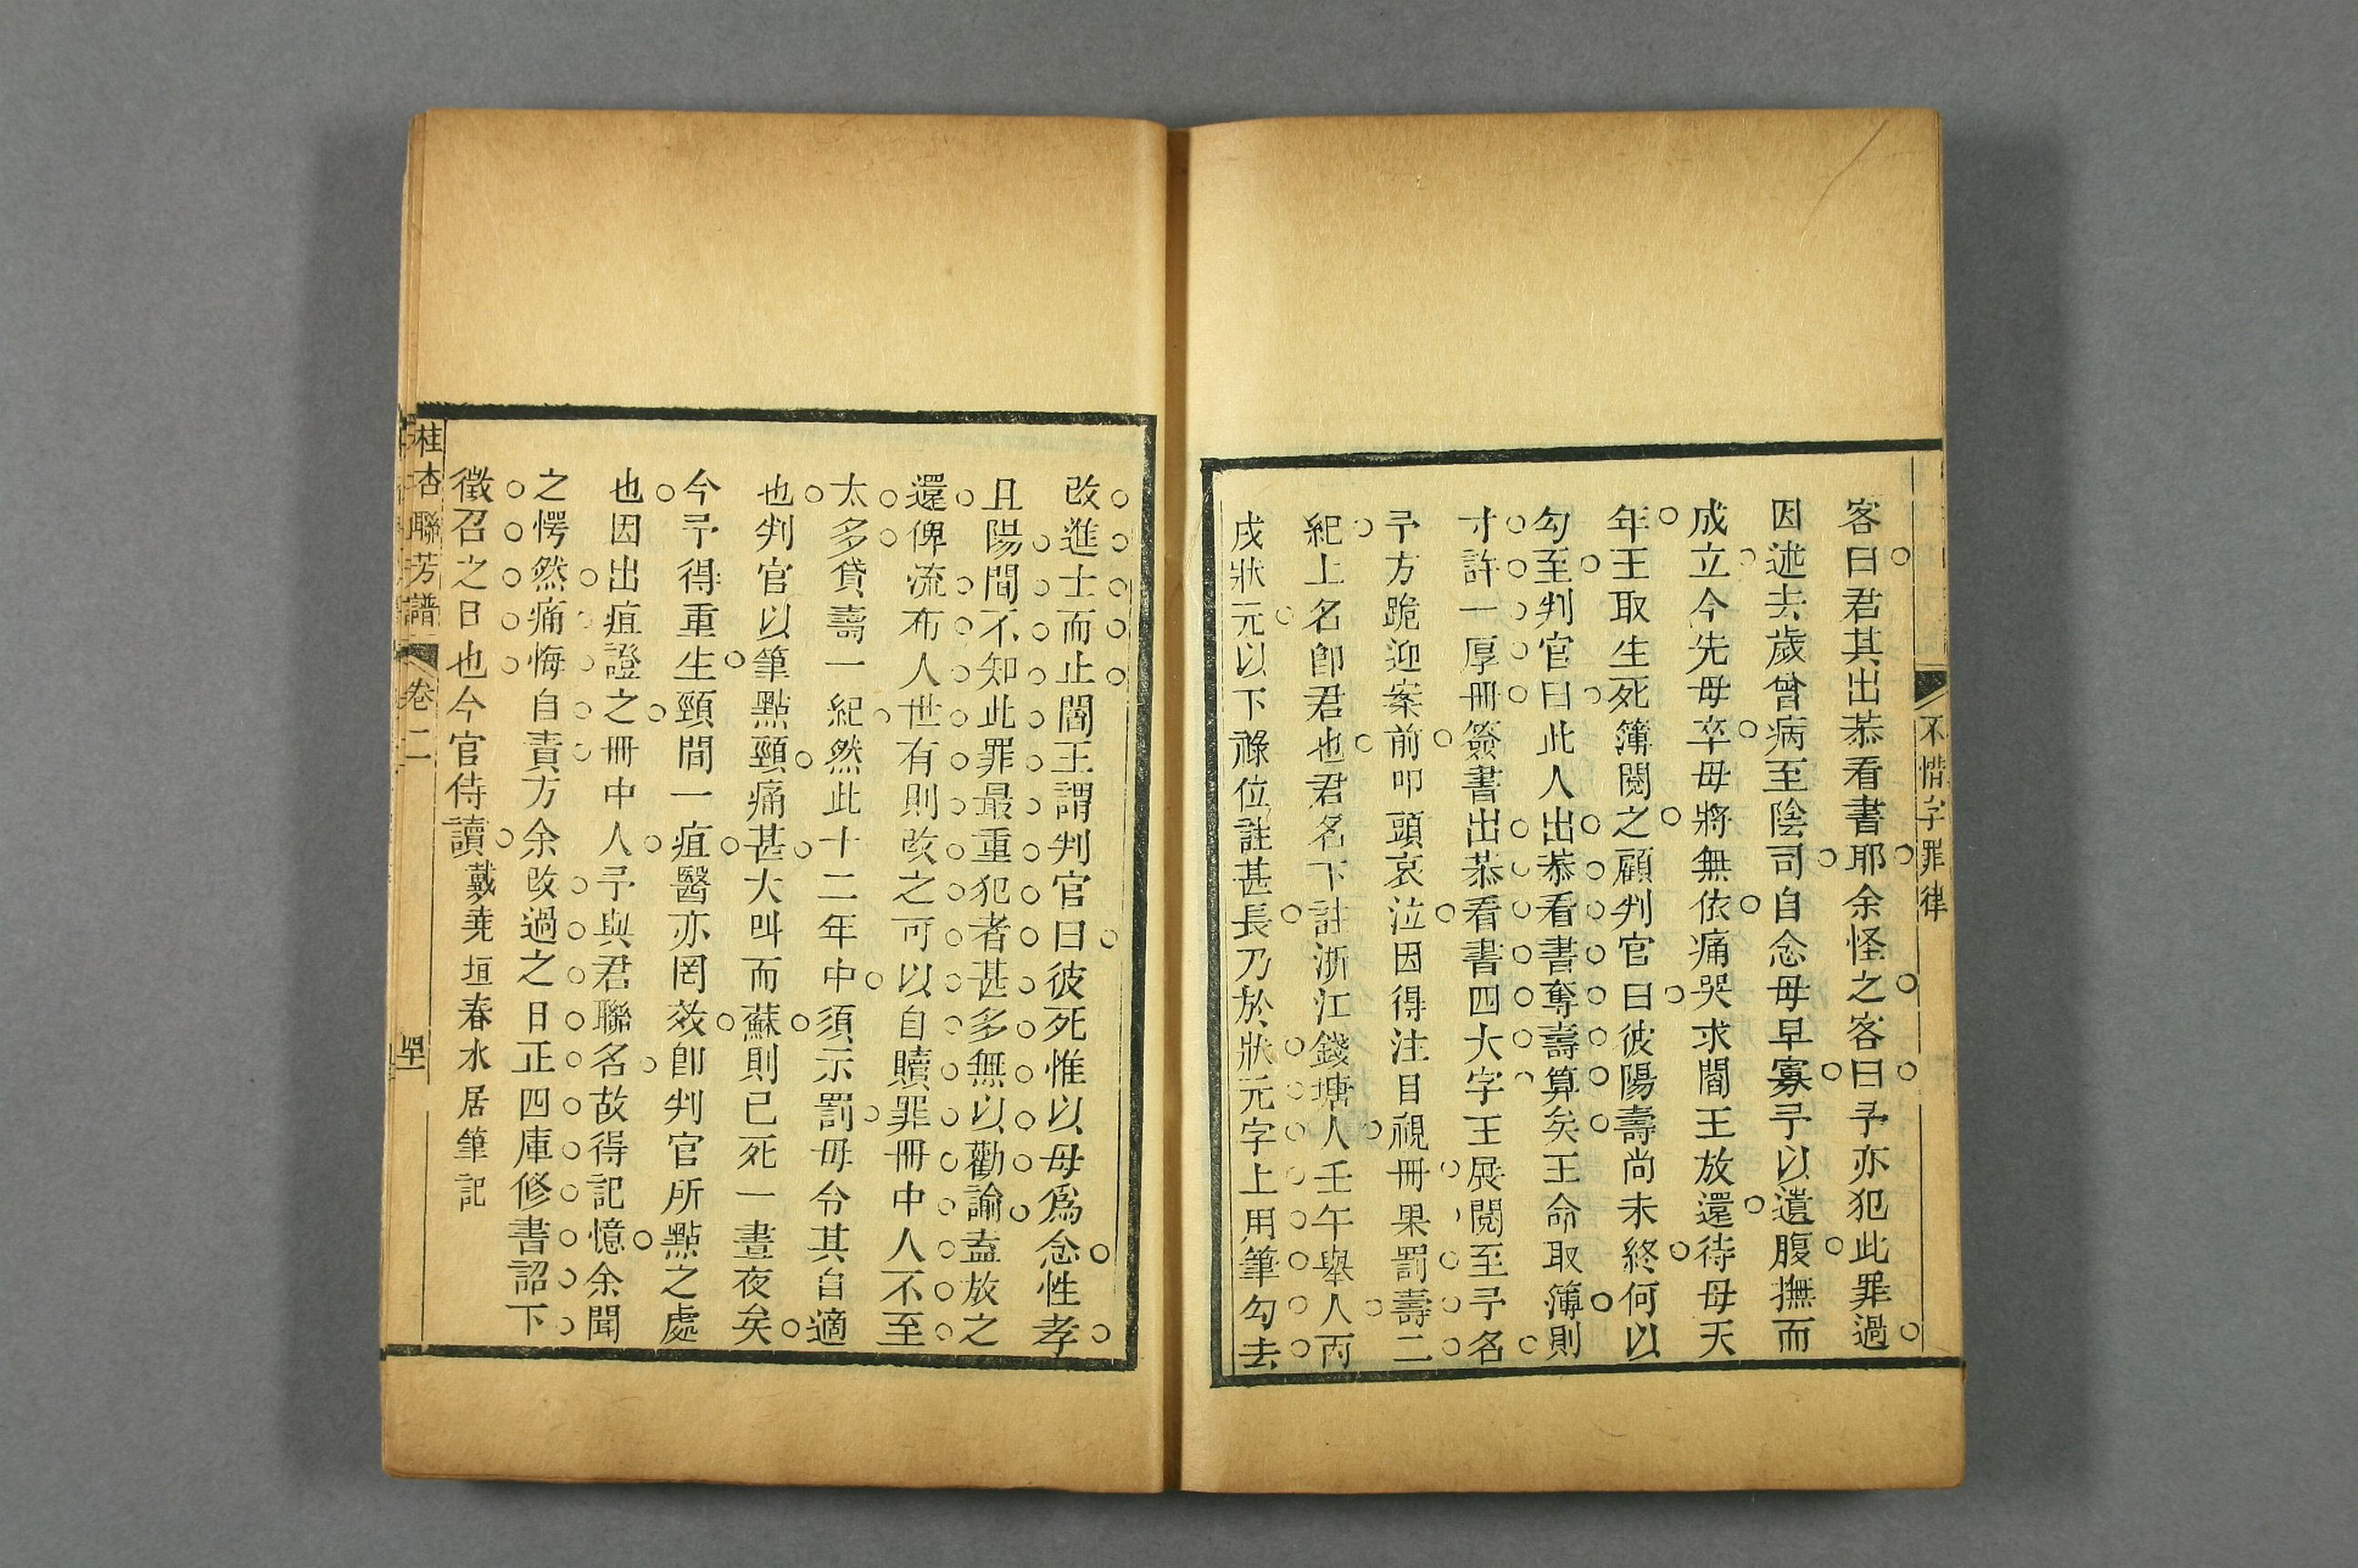 不惜字罪律
客曰君其出恭看書耶余怪之客曰予亦犯此罪過
因述去歲曾病至陰司自念母早寡予以遺腹撫而
成立今先母卒母將無依痛哭求閻王放還待母天
年王取生死簿閱之顧判官曰彼陽壽尚未終何以
勾至判官曰此人出恭看書奪壽算矣王命取簿則
寸許一厚冊簽書出恭看書四大字王展閱至予名
予方跪迎案前叩頭哀泣因得注目視冊果罰壽二
紀上名卽君也君名下註浙江錢塘人壬午舉人丙
戌狀元以下祿位註甚長乃於狀元字上用筆勾去
改進士而止閻王謂判官曰彼死惟以母爲念性孝
且陽間不知此罪最重犯者甚多無以勸諭盍放之
還俾流布人世有則改之可以自贖罪冊中人不至
太多貸壽一紀然此十二年中須示罰毋令其自適
也判官以筆點頸痛甚大叫而蘇則已死一晝夜矣
今予得重生頸間一疽醫亦罔效卽判官所點之處
也因出疽證之冊中人予與君聯名故得記憶余聞
之愕然痛悔自責方余改過之日正四庫修書詔下
徵召之日也今官侍讀戴堯垣春水居筆記
桂杏聯芳譜 卷二